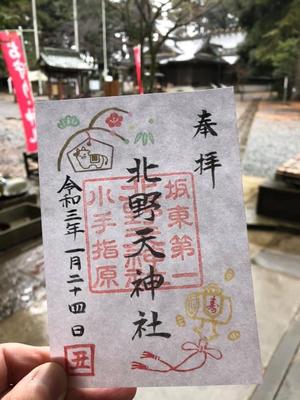 奉拝
坂東第一
北野天神社
小手指原
令和三年一月二十四日
丑
寿